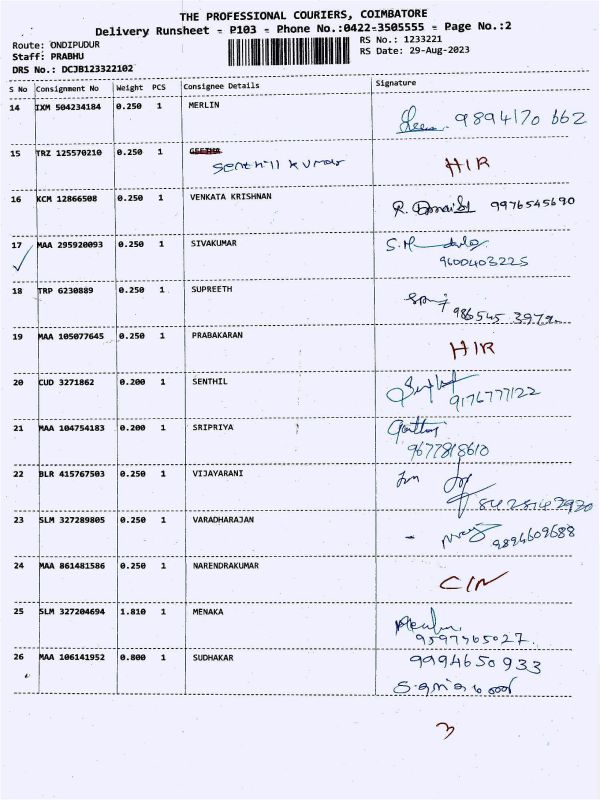 THE PROFESSIONAL COURIERS, COIMBATORE
Delivery Runsheet - P103 - Phone No.:0422-3505555 - Page No.:2
Route: ONDIPUDUR
RS No.: 1233221
Staff: PRABHU
RS Date: 29-Aug-2023
DRS No.: DCJB123322102
S No Consignment No Weight PCS Consignee Details Signature
14 IXM 504234184 0.250 1 MERLIN
9894170 662
15 TRZ 125570210 0.250 1 GEETHA
Senthill kumar HIR
16 KCM 12866508 0.250 1 VENKATA KRISHNAN
9976545690
17 MAA 295920093 0.250 1 SIVAKUMAR
9600403225
18 TRP 6230889 0.250 1 SUPREETH
19 MAA 105077645 0.250 1 PRABAKARAN
HIR
20 CUD 3271862 0.200 1 SENTHIL
9176777122
21 MAA 104754183 0.200 1 SRIPRIYA
9677818610
22 BLR 415767503 0.250 1 VIJAYARANI
23 SLM 327289805 0.250 1 VARADHARAJAN
9894609688
24 MAA 861481586 0.250 1 NARENDRAKUMAR
CIN
25 SLM 327204694 1.810 1 MENAKA
9597465027.
26 MAA 106141952 0.800 1 SUDHAKAR
9994650933
3